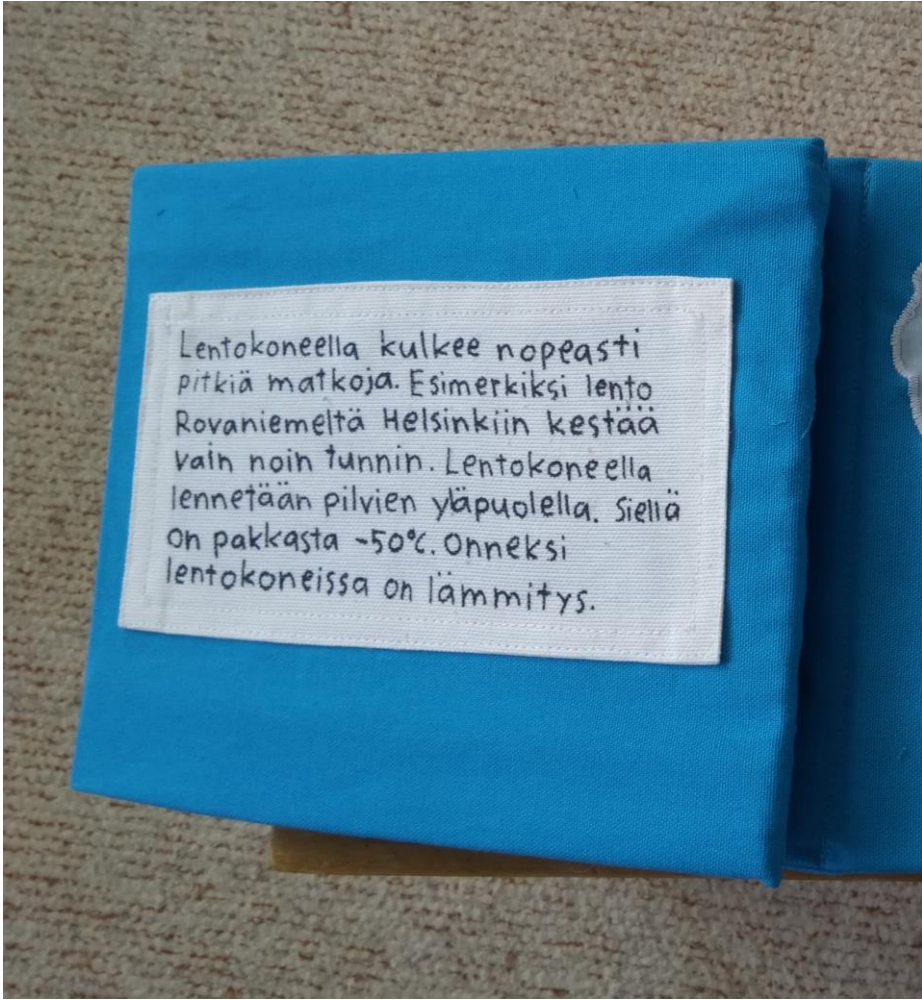 Lentokoneella kulkee nopeasti
pitkiä matkoja. Esimerkiksi lento
Rovaniemeltä Helsinkiin kestää
vain noin tunnin. Lentokoneella
lennetään pilvien yläpuolella. Siellä
on pakkasta -50°C. Onneksi
lentokoneissa on lämmitys.